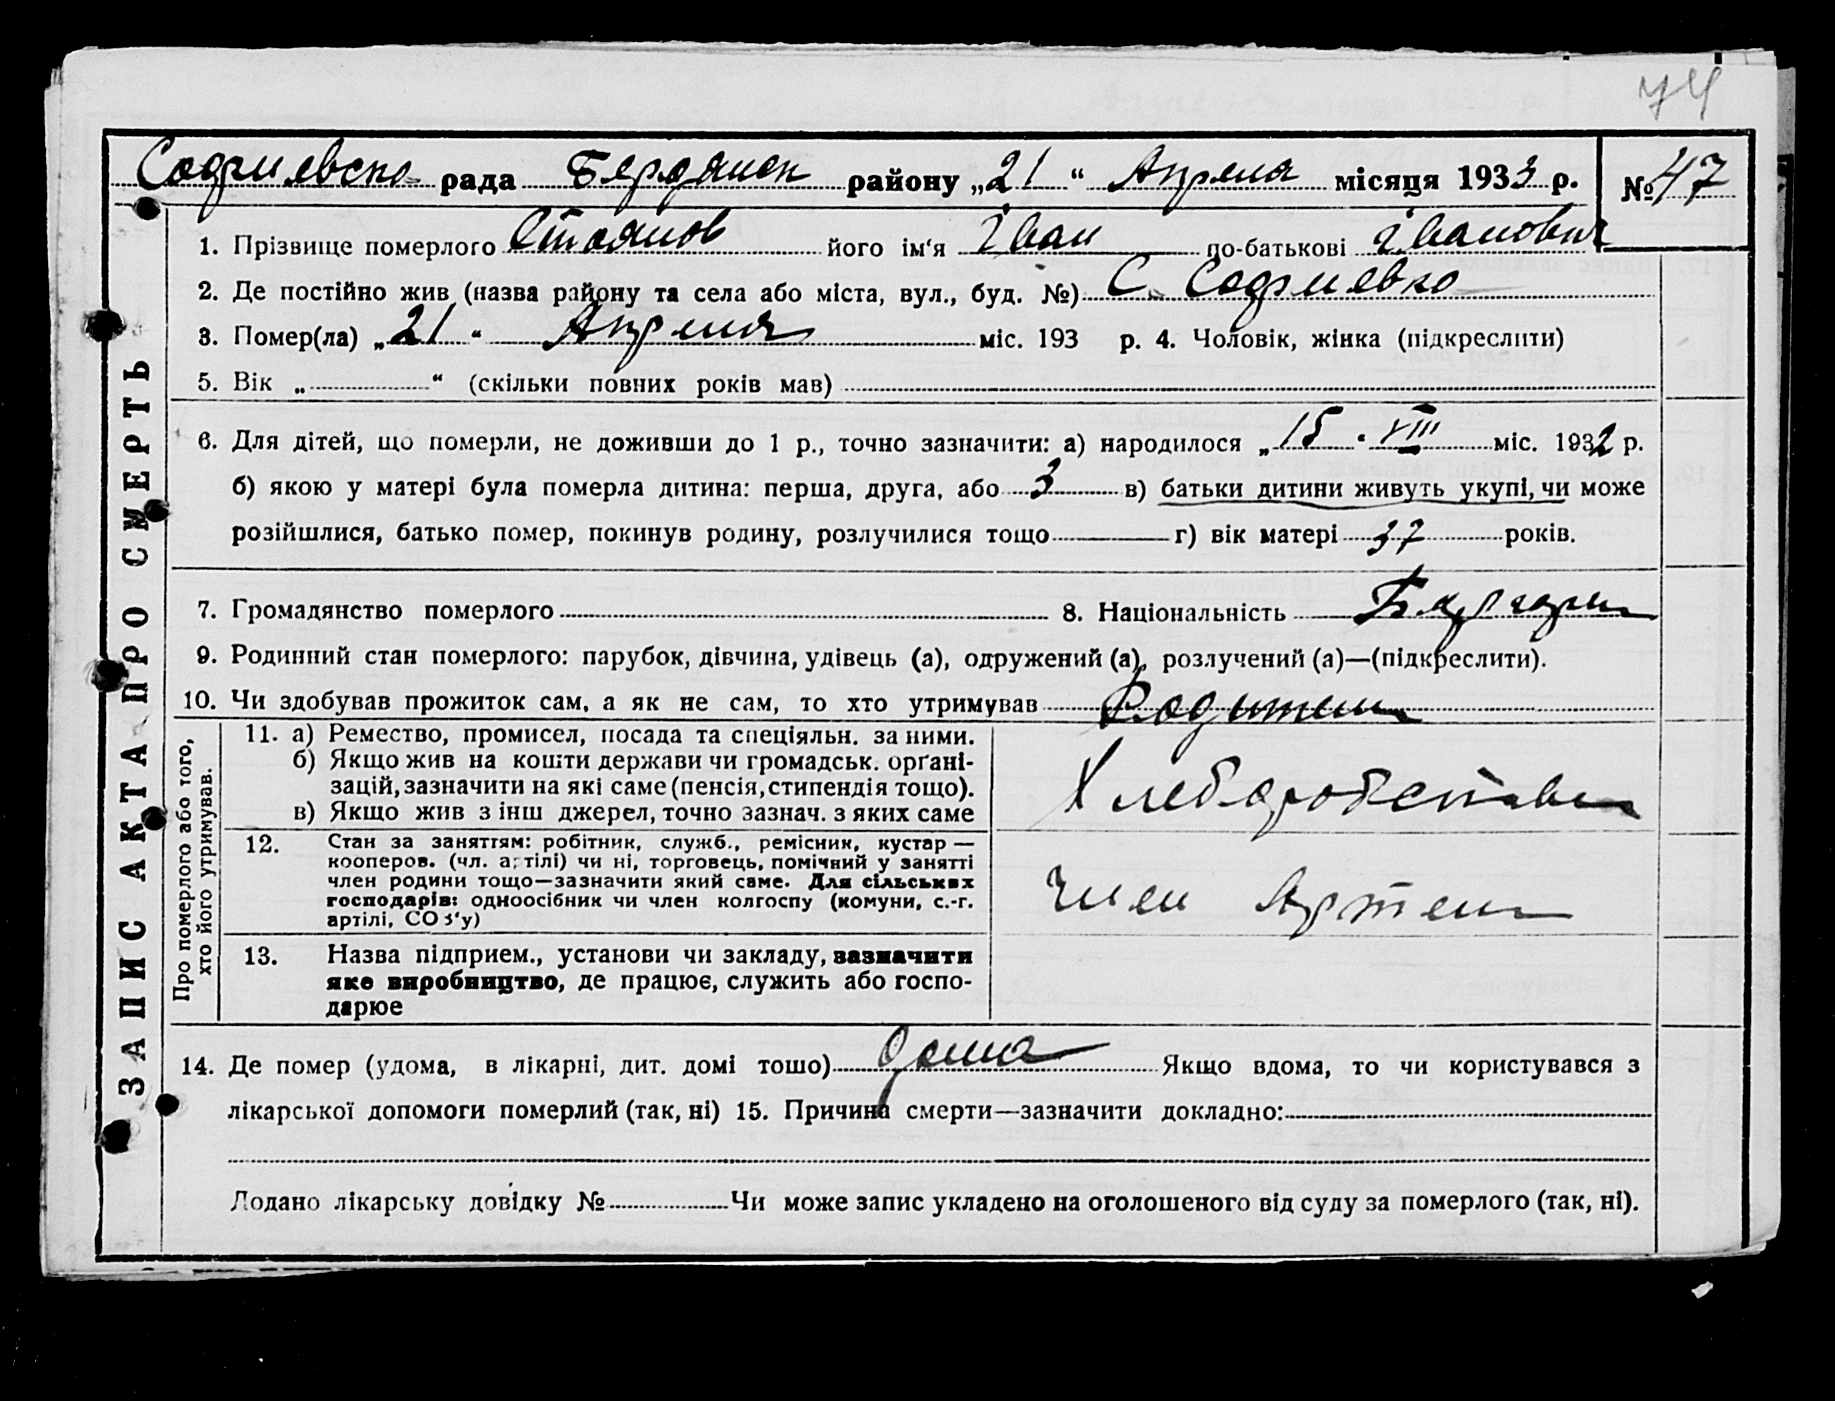 74
Софиевско рада Бердянск району „21“ Апреля місяця 1933 р. № 47
ЗАПИС АКТА ПРО СМЕРТЬ
1. Прізвище померлого Стоянов його ім‘я Іван по-батькові Іванович
2. Де постійно жив (назва району та села або міста, вул., буд. №) С. Софиевко
3. Помер(ла) „21“ Апреля міс. 193 р. 4. Чоловік, жінка (підкреслити)
5. Вік „ “ (скільки повних років мав)
6. Для дітей, що померли, не доживши до 1 р., точно зазначити: а) народилося „15“ VIII міс. 1932 р.
б) якою у матері була померла дитина: перша, друга, або 3 в) батьки дитини живуть укупі, чи може
розійшлися, батько помер, покинув родину, розлучилися тощо г) вік матері 37 років.
7. Громадянство померлого 8. Національність
9. Родинний стан померлого: парубок, дівчина, удівець (а), одружений (а), розлучений (а)—(підкреслити).
10. Чи здобував прожиток сам, а як не сам, то хто утримував Родители
Про померлого або того,
хто його утримував.
11. а) Ремество, промисел, посада та спеціяльн. за ними.
б) Якщо жив на кошти держави чи громадськ. орґані-
зацій, зазначити на які саме (пенсія, стипендія тощо).
в) Якщо жив з інш джерел, точно зазнач. з яких саме
12. Стан за заняттям: робітник, служб., ремісник, кустар —
кооперов. (чл. артілі) чи ні, торговець, помічний у занятті
член родини тощо—зазначити який саме. Для сільських
господарів: одноосібник чи член колгоспу (комуни, с.-г.
артілі, СОЗ‘у)
Член Артели
13. Назва підприєм., установи чи закладу, зазначити
яке виробництво, де працює, служить або госпо-
дарює
14. Де помер (удома, в лікарні, дит. домі тошо) дома Якщо вдома, то чи користувався з
лікарської допомоги померлий (так, ні) 15. Причина смерти—зазначити докладно:
Додано лікарську довідку № Чи може запис укладено на оголошеного від суду за померлого (так, ні).